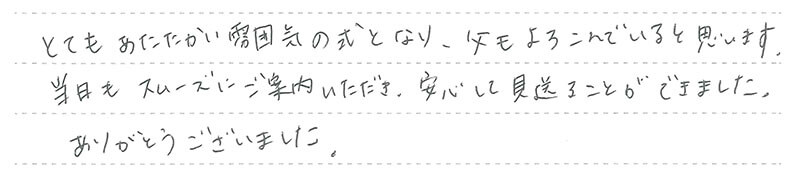 とてもあたたかい雰囲気の式となり、父もよろこんでいると思います。
当日もスムーズにご案内いただき、安心して見送ることができました。
ありがとうございました。